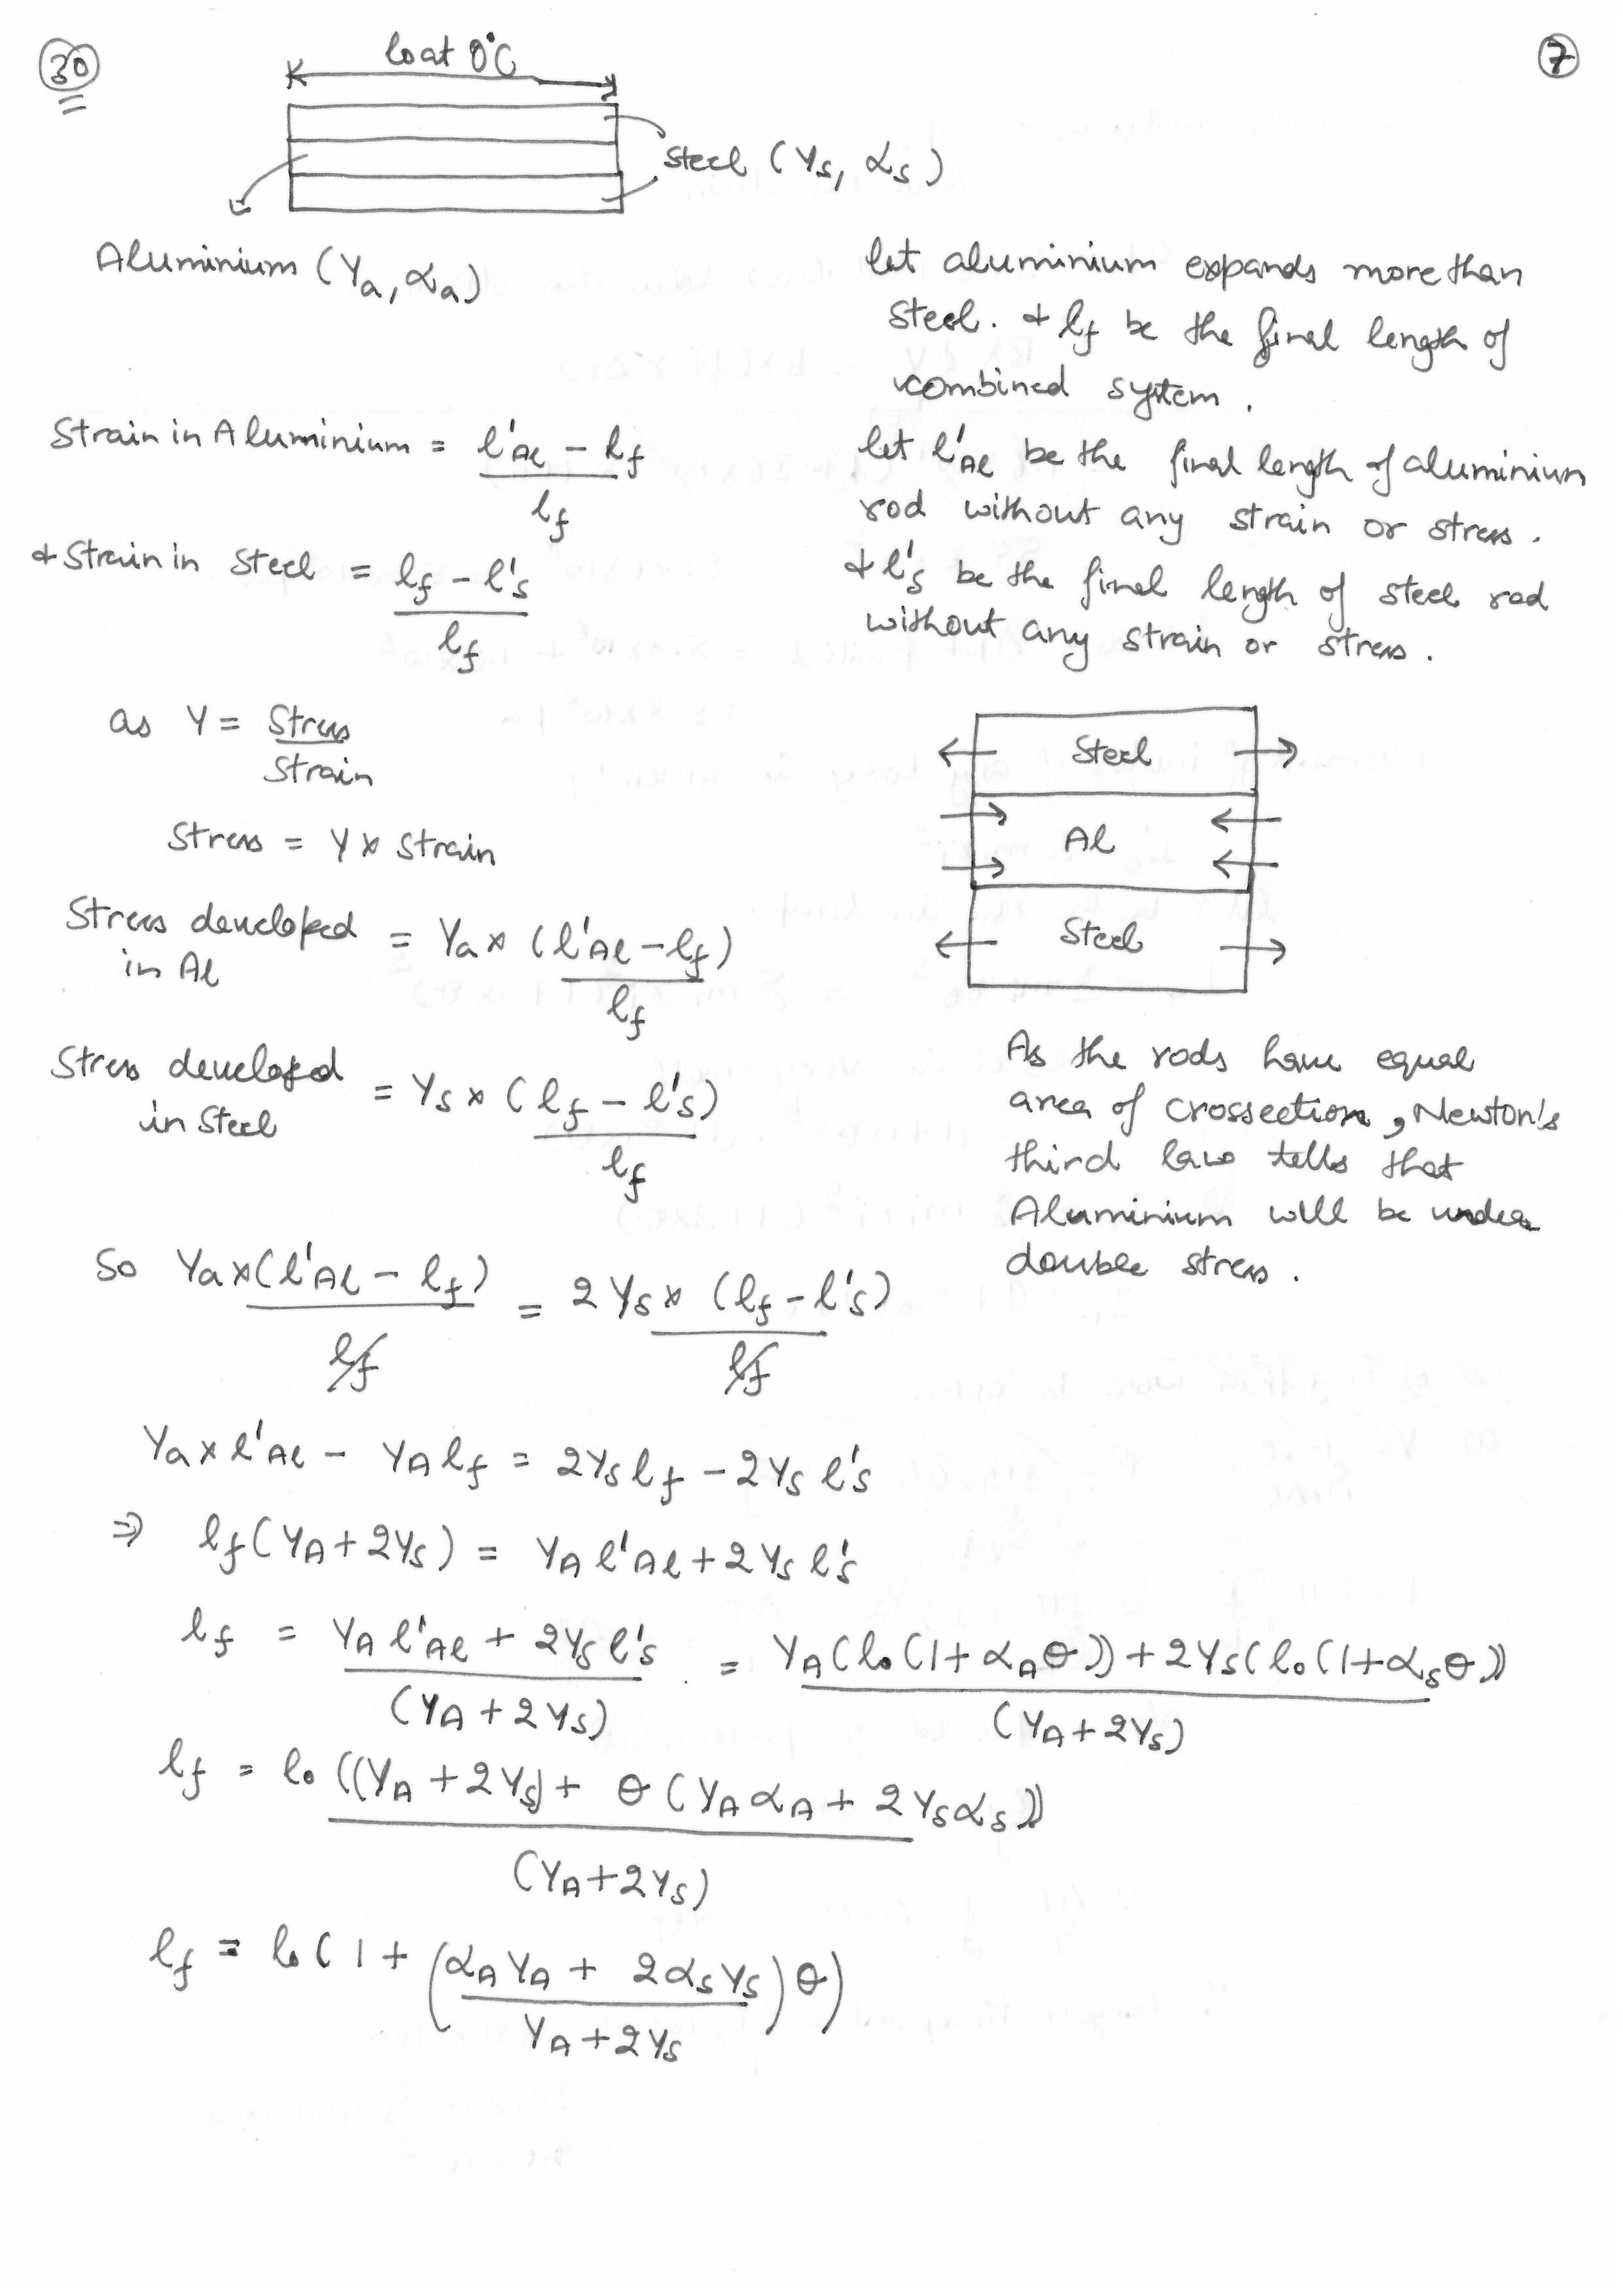 30
7
l₀ at 0°C
Steel (Ys, αs)
Aluminium (Ya, αa)
let aluminium expands more than
steel. & lf be the final length of
combined system.
Strain in Aluminium = l'Al - lf / lf
let l'Al be the final length of aluminium
rod without any strain or stress.
& Strain in Steel = lf - l's / lf
& l's be the final length of steel rod
without any strain or stress.
as Y = Stress / Strain
Stress = Y x Strain
Steel
Al
Steel
Stress developed in Al = Ya x (l'Al - lf) / lf
Stress developed in Steel = Ys x (lf - l's) / lf
As the rods have equal
area of crossection, Newton's
third law tells that
Aluminium will be under
double stress.
So Ya x (l'Al - lf) / lf = 2Ys x (lf - l's) / lf
Ya x l'Al - YA lf = 2Ys lf - 2Ys l's
⇒ lf (YA + 2Ys) = YA l'Al + 2Ys l's
lf = YA l'Al + 2Ys l's / (YA + 2Ys) = YA (l₀ (1 + αA θ)) + 2Ys (l₀ (1 + αs θ)) / (YA + 2Ys)
lf = l₀ ((YA + 2Ys) + θ (YA αA + 2Ys αs)) / (YA + 2Ys)
lf = l₀ (1 + (αA YA + 2αs Ys / YA + 2Ys) θ)